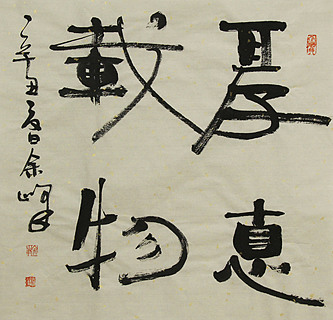 厚悳
載物
辛丑夏日余峰